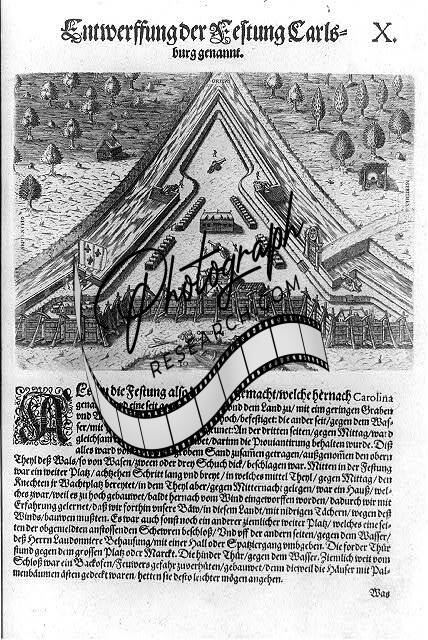 Entwerffung der Festung Carls= X.
burg genannt.
ORIENS
MERIDIES
Photograph
RESEARCH.COM
die Festung gemacht/welche hernach Carolina
gena eine seit dem Land zu/mit ein geringen Graben
und hoch/befestiget: die ander seit/gegen dem Was=
ser/mit An der dritten seiten/gegen Mittag/war
gleichsam darinn die Proviantirung behalten wurde. Diß
alles ward von groben Sand zusamen getragen/außgenom̃en den obern
Theyl deß Wals/so von Wasen/zween oder drey Schuch dick/beschlagen war. Mitten in der Festung
war ein weiter Platz/achtzehen Schritt lang und breyt/in welches mittel Theyl/gegen Mittag/den
Knechten jr Wachtplatz bereytet/in dem Theyl aber/gegen Mitternacht gelegen/war ein Hauß/wel=
ches zwar/weil es zu hoch gebauwet/baldt hernach vom Wind eingeworffen worden/dadurch wir mit
Erfahrung gelernet/daß wir forthin unsere Bäw/in diesem Landt/mit nidrigen Tächern/wegen deß
Winds/bauwen mußten. Es war auch sonst noch ein anderer ziemlicher weiter Platz/welches eine sei=
ten der obgemeldten anstossenden Schewren beschloß/Und uff der andern seiten/gegen dem Wasser/
deß Herrn Laudonniere Behausung/mit einer Hall oder Spatziergang umbgeben. Die forder Thür
stund gegen dem grossen Platz oder Marckt. Die hinder Thür/gegen dem Wasser. Ziemlich weit vom
Schloß war ein Backofen/Feuwers gefahr zuverhüten/gebauwet/denn dieweil die Häuser mit Pal=
menbäumen ästen gedeckt waren/hetten sie desto leichter mögen angehen.
Was